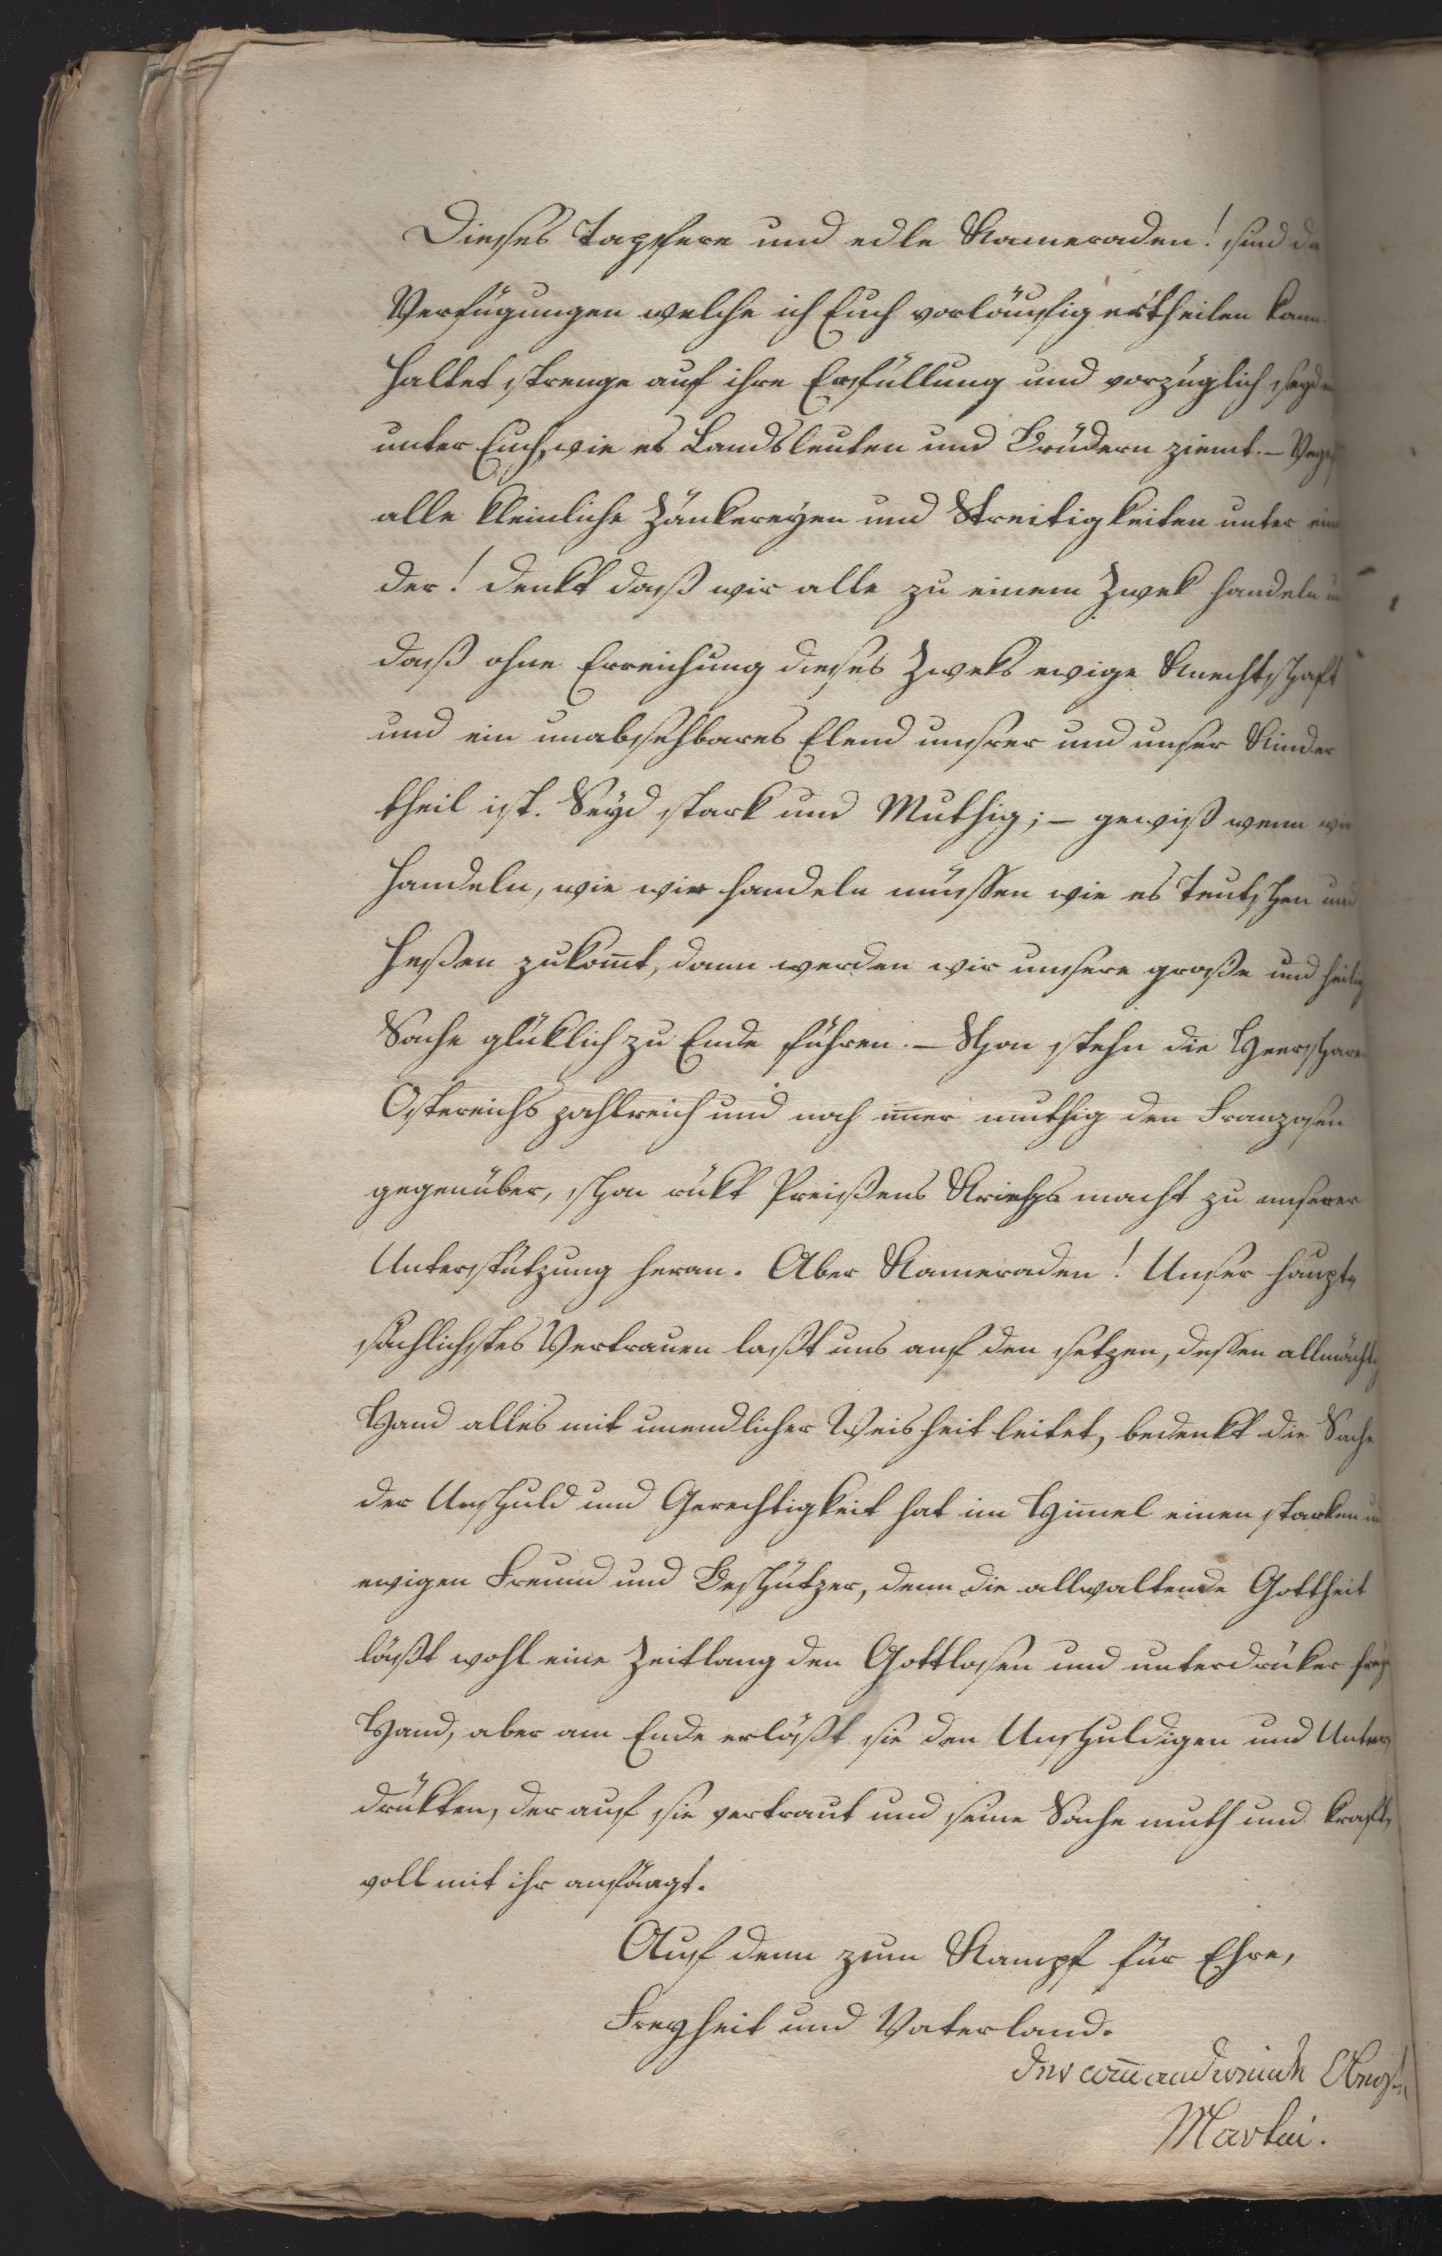 Dieses Tapfere und edle Kameraden! sind die
Verfügungen welche ich Euch vorläufig ertheilen kann.
Haltet strenge auf ihre Erfüllung und vorzüglich seyd
unter Euch, wie es Landsleuten und Brüdern ziemt. –
alle kleinliche Zänkereyen und Streitigkeiten unter einan
der! denkt daß wir alle zu einem Zwek handeln
daß ohne Erreichung dieses Zweks ewige Knechtschaft
und ein unabsehbares Elend unsrer und unser Kinder
theil ist. Seyd stark und Muthig; – gewiß wenn wir
handeln, wie wir handeln müssen wie es Teutschen und
Heßen zukom̄t, dann werden wir unsere große und heilig
Sache glüklich zu Ende führen. – Schon stehn die Heerscharen
Ostereichs zahlreich und noch im̄er muthig den Franzosen
gegenüber, schon rükt Preißens Kriegs macht zu unserer
Unterstützung heran. Aber Kameraden! Unser haupt,
sächlichstes Vertrauen laßt uns auf den setzen, deßen allmächtig
Hand alles mit unendlicher Weisheit leitet, bedenkt die Sache
der Unschuld und Gerechtigkeit hat im Him̄el einen starken
ewigen Freund und Beschützer, denn die allwaltende Gottheit
läßt wohl eine Zeitlang den Gottlosen und unterdrüker
Hand, aber am Ende erläßt sie den Unschuldigen und Unter,
drükten, der auf sie vertraut und seine Sache muth und kraft,
voll mit ihr anfängt.
Auf denn zum Kampf für Ehre,
Freyheit und Vaterland.
Der com̄andirende Obrist
Martin.